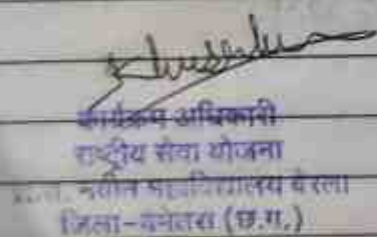 कार्यक्रम अधिकारी
राष्ट्रीय सेवा योजना
नवीन महाविद्यालय बेरला
जिला-बेमेतरा (छ.ग.)